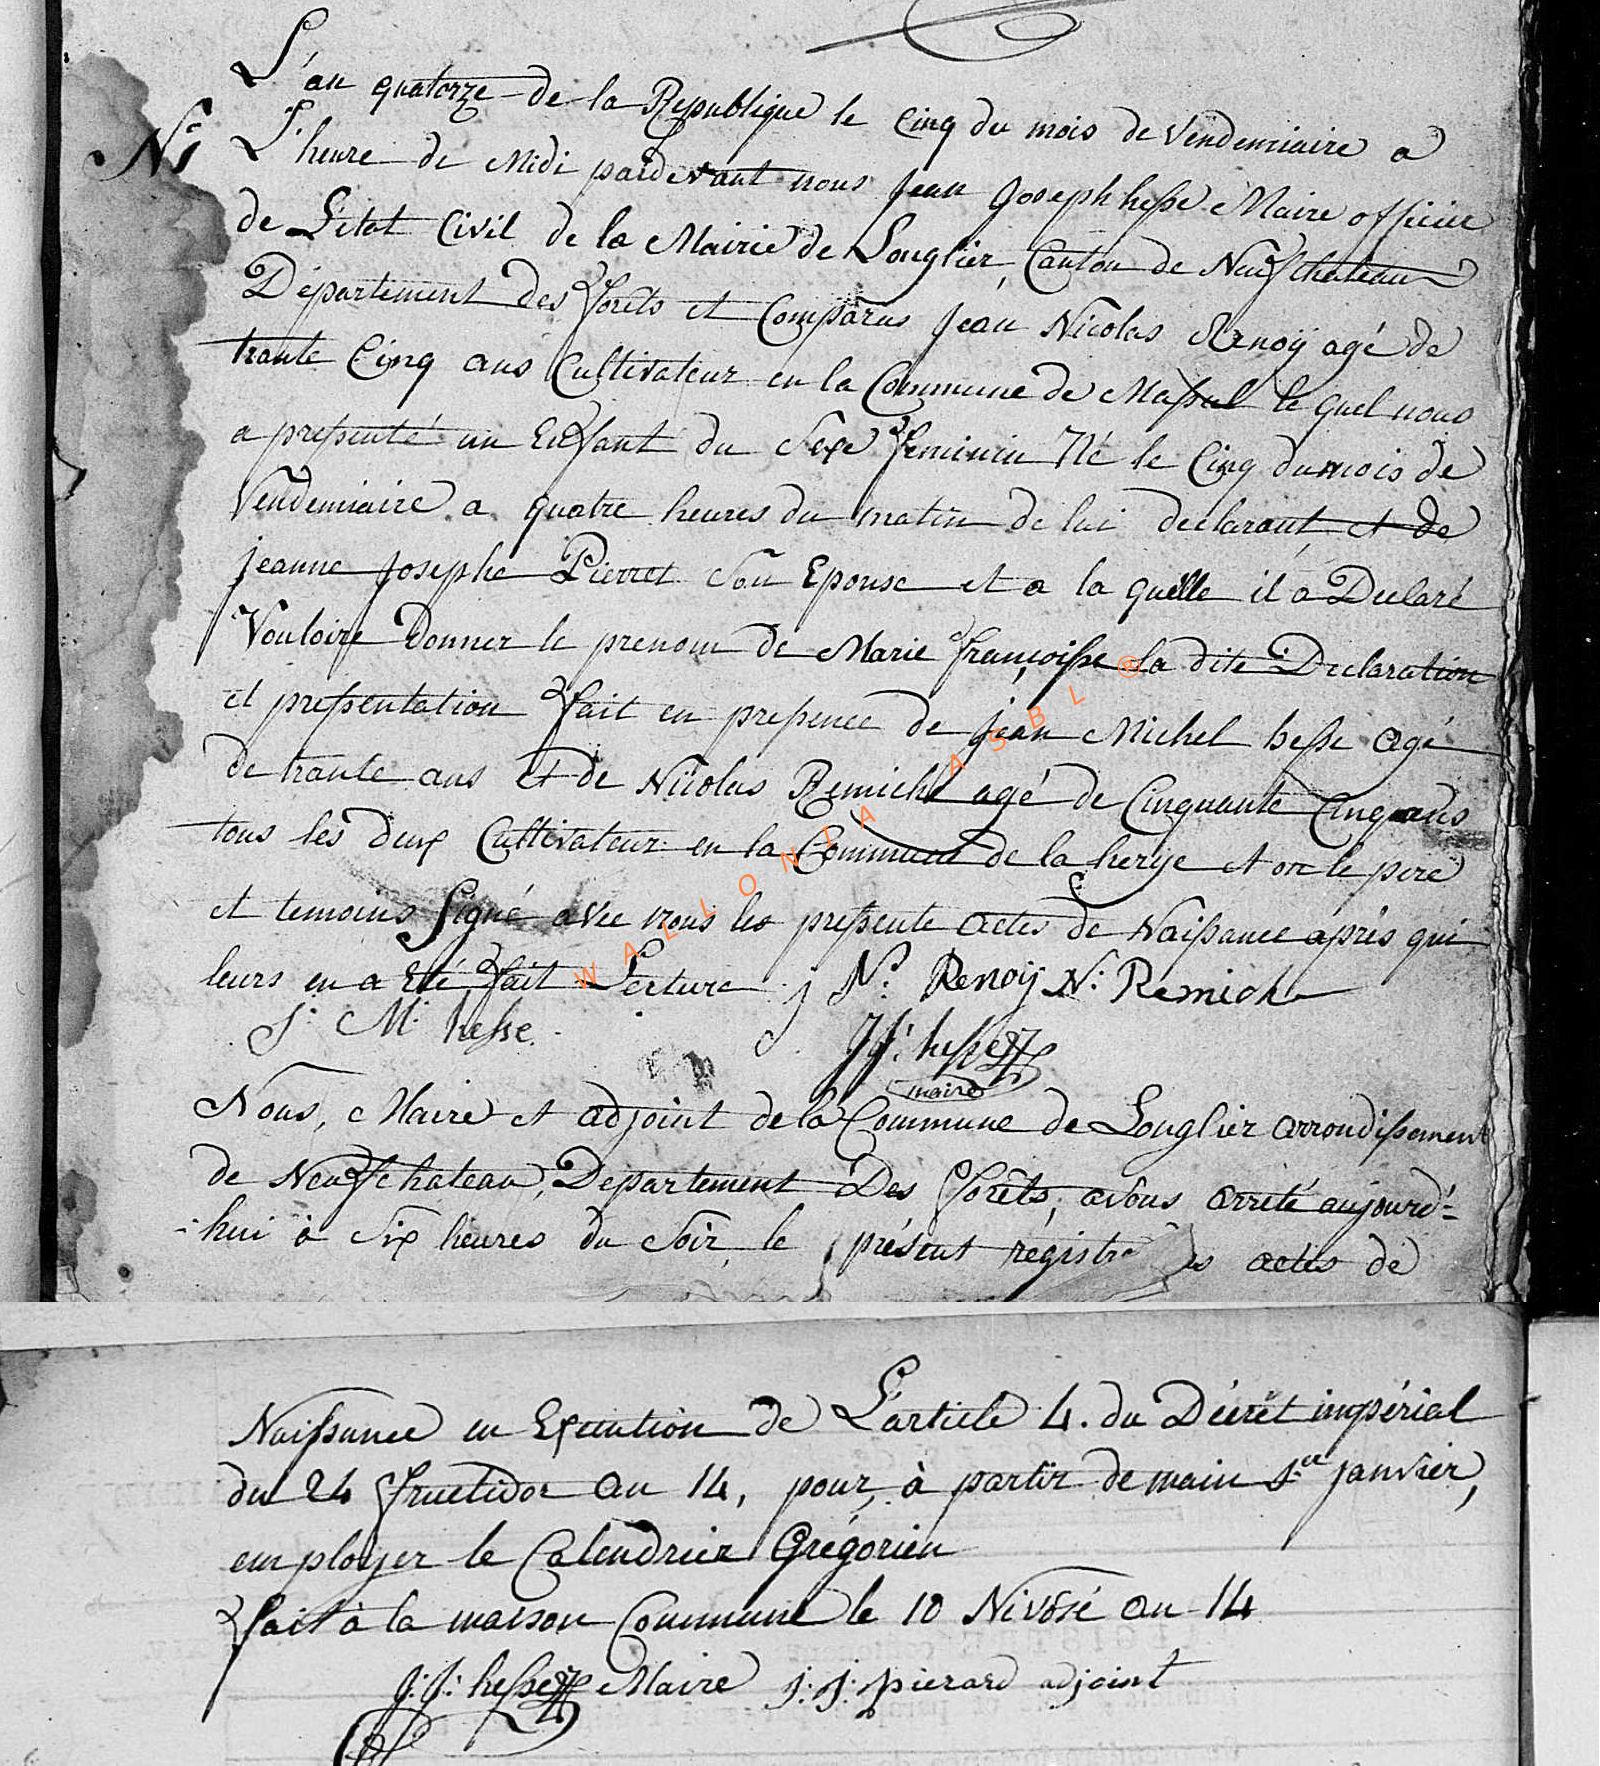 L'an quatorze de la Republique le Cinq du mois de Vendemiaire a
N° 1
L'heure de Midi pardevant nous Jean Joseph hesse Maire officier
de L'etat Civil de la Mairie de Longlier, Canton de Neufchateau
Département des forêts et Comparus Jean Nicolas Renoÿ agé de
trante Cinq ans Cultivateur en la Commune de Massul le quel nous
a pressenté un Enfant du Sexe feminin Né le Cinq du mois de
Vendemiaire a quatre heures du matin de lui declarant et de
jeanne josephe Pierret Son Epouse et a la quelle il a Declaré
Vouloire donner le prenom de Marie françoisse la dite Declaration
et pressentation fait en pressence de jean Michel hesse agé
de trante ans et de Nicolas Remiche agé de Cinquante Cinq ans
tous les deux Cultivateur en la Commune de la herye et on le pere
et temoins Signé avec nous les pressente actes de Naissance après qui
leurs en a été fait Lecture j N. Renoÿ N: Remiche
J. M. hesse.
J J: hesse
maire
Nous, Maire et adjoint de la Commune de Longlier arrondissement
de Neufchateau, Departement Des forêts, avons arrêté aujourd'=
hui à Six heures du Soir, le présent régistre es actes de
Naissance en Exécution de L'article 4. du Décrêt impérial
du 24 fructidor an 14, pour, à partir demain 1.er janvier,
employer le Calendrier Grégorien
fait à la maison Commune le 10 Nivôsé an 14
J: J: hesse Maire j: j: pierard adjoint
WALLONIA ASBL ®